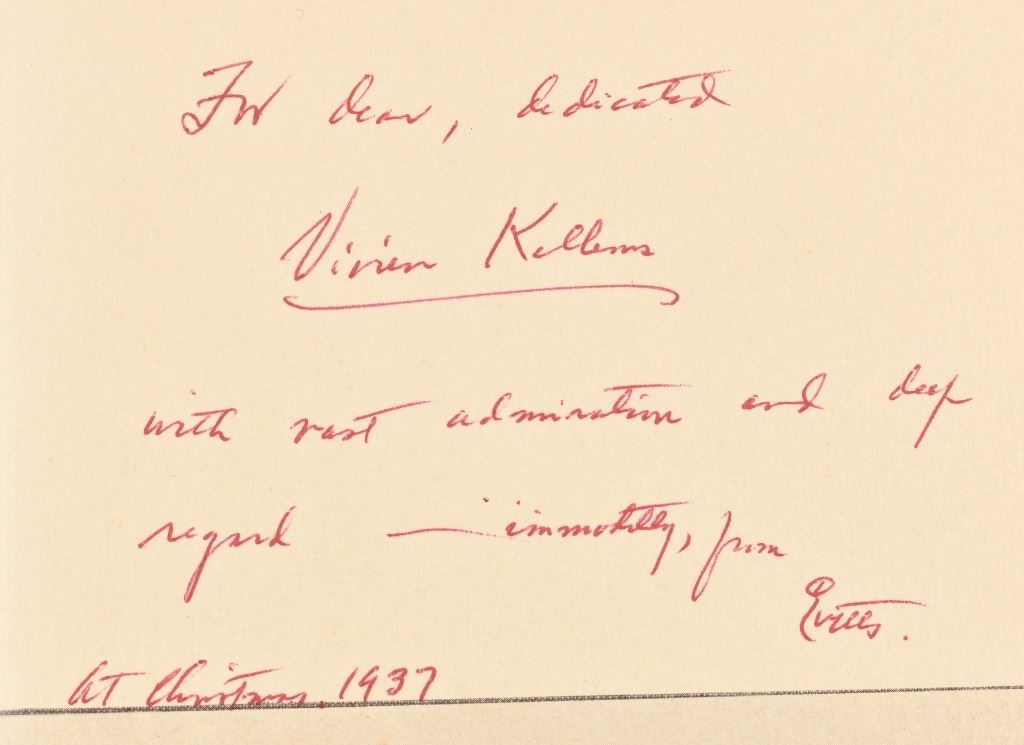 For dear, dedicated
Vivien Kellems
with vast admiration and deep
regard — immutably, from
At Christmas, 1937